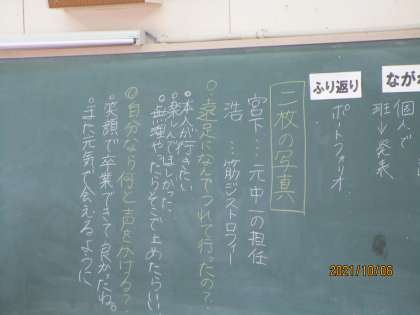 なが
個人で
班→発表
ふり返り
ポートフォリオ
二枚の写真
宮下…元中一の担任
浩…筋ジストロフィー
○遠足になんでつれて行ったの?
•本人が行きたい
•楽しんでほしかった
•無理やったらそこで止めたらいい
◎自分なら何と声をかける?
•笑顔で卒業できて良かったね。
•また元気で会えるように
2021/10/06